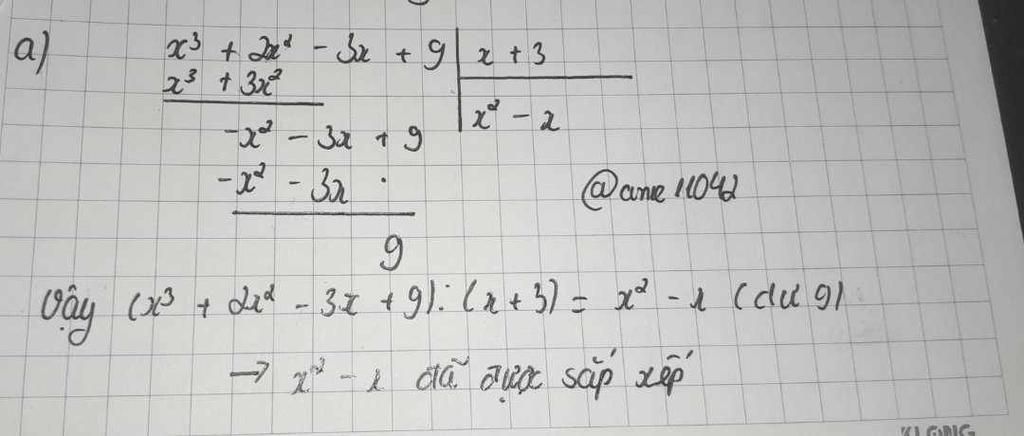 a) x³ + 2x² - 3x + 9 | x + 3
x³ + 3x²
x² - x
-x² - 3x + 9
-x² - 3x
@ame11042
9
Vậy (x³ + 2x² - 3x + 9) : (x + 3) = x² - x (dư 9)
→ x² - x đã được sắp xếp